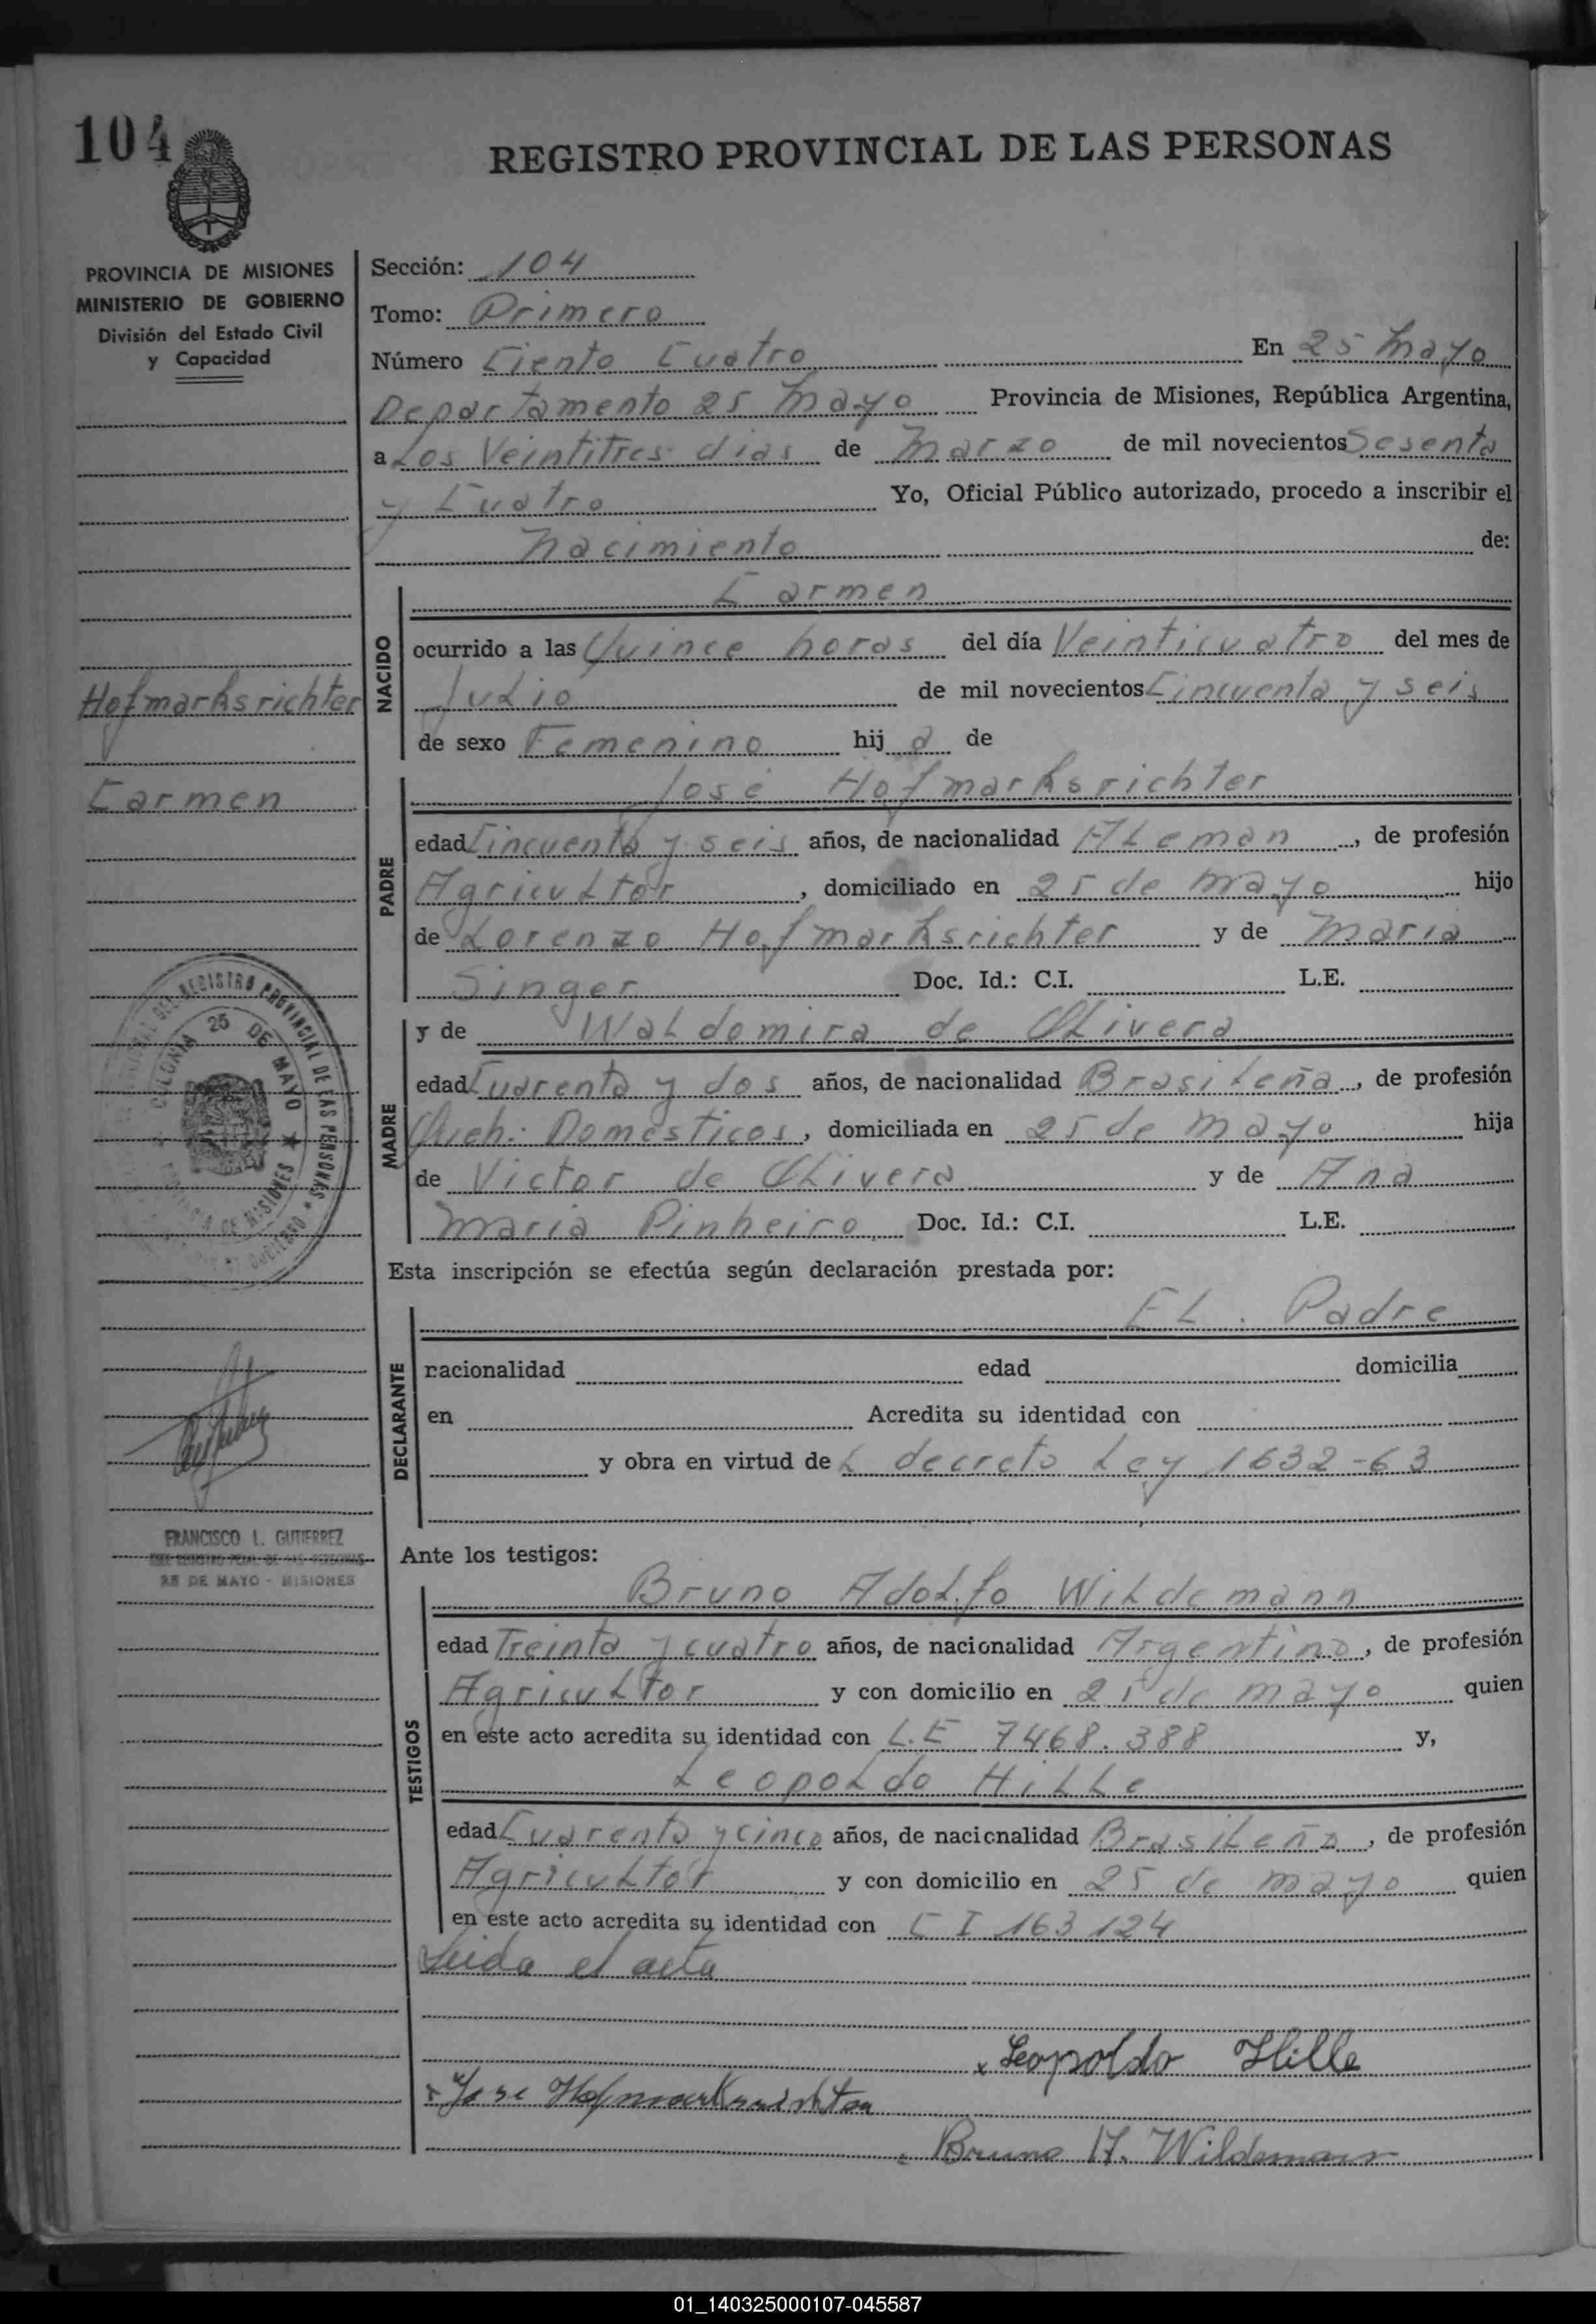 104
REGISTRO PROVINCIAL DE LAS PERSONAS
PROVINCIA DE MISIONES
MINISTERIO DE GOBIERNO
División del Estado Civil
y Capacidad
Hofmarksrichter
Carmen
REGISTRO PROVINCIAL DE LAS PERSONAS
COLONIA 25 DE MAYO
DE MISIONES
FRANCISCO L. GUTIERREZ
25 DE MAYO - MISIONES
Sección: 104
Tomo: Primero
Número Ciento Cuatro En 25 Mayo
Departamento 25 Mayo Provincia de Misiones, República Argentina,
a Los Veintitres dias de Marzo de mil novecientos Sesenta
y Cuatro Yo, Oficial Público autorizado, procedo a inscribir el
Nacimiento de:
NACIDO
Carmen
ocurrido a las Quince horas del día Veinticuatro del mes de
Julio de mil novecientos Cincuenta y seis
de sexo Femenino hij a de
PADRE
José Hofmarksrichter
edad Cincuenta y seis años, de nacionalidad ALeman, de profesión
AgricuLtor, domiciliado en 25 de Mayo hijo
de Lorenzo Hofmarksrichter y de Maria
Singer Doc. Id.: C.I. L.E.
MADRE
y de WaLdomira de OLivera
edad Cuarenta y dos años, de nacionalidad BrasiLeña, de profesión
Queh. Domesticos, domiciliada en 25 de Mayo hija
de Victor de OLivera y de Ana
Maria Pinheiro Doc. Id.: C.I. L.E.
Esta inscripción se efectúa según declaración prestada por:
DECLARANTE
EL Padre
nacionalidad edad domicilia
en Acredita su identidad con
y obra en virtud de L decreto Ley 1632-63
Ante los testigos:
TESTIGOS
Bruno AdoLfo WiLdemann
edad Treinta y cuatro años, de nacionalidad Argentino, de profesión
AgricuLtor y con domicilio en 25 de Mayo quien
en este acto acredita su identidad con L.E 7468.388 y,
LeopoLdo HiLLe
edad Cuarenta y cinco años, de nacionalidad BrasiLeño, de profesión
AgricuLtor y con domicilio en 25 de Mayo quien
en este acto acredita su identidad con C I 163124
Leida el acta
x Leopoldo Hille
x Jose Hofmarksrichter
Bruno A. Wildemann
01_140325000107-045587